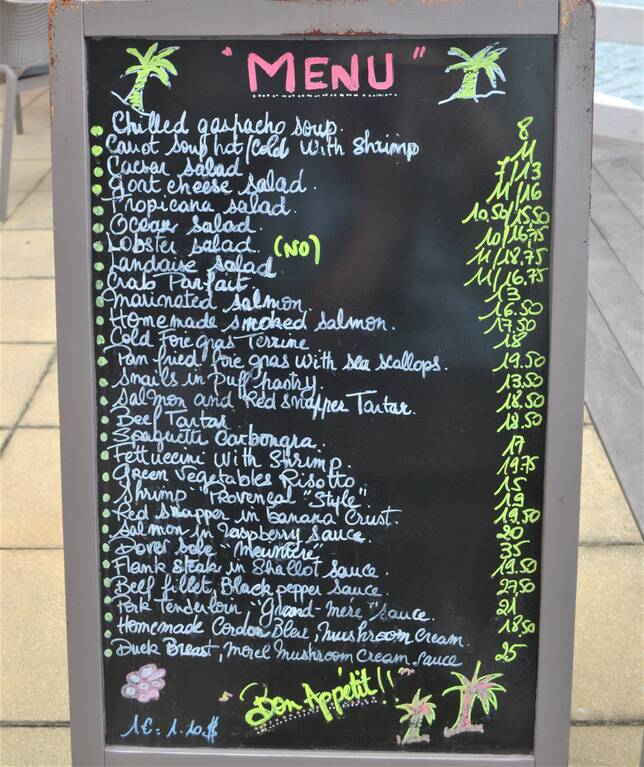 "MENU"
Chilled gaspacho soup. 8
Carrot soup hot/cold with shrimp 11
Caesar salad 7/13
Goat cheese salad. 11/16
Tropicana salad. 10.50/15.50
Ocean salad. 10/16.75
Lobster salad (NO) 11/18.75
Landaise salad 11/16.75
Crab Parfait. 13
Marinated salmon 16.50
Homemade smoked salmon. 17.50
Cold Foie gras Terrine 18
Pan fried foie gras with sea scallops. 19.50
Snails in Puff Pastry. 13.50
Salmon and Red snapper Tartar. 18.50
Beef Tartar 18.50
Spaghetti Carbonara. 17
Fettuccini with Shrimp. 19.75
Green Vegetables Risotto. 15
Shrimp "Provençal "Style". 19
Red snapper in banana Crust. 19.50
Salmon in Raspberry sauce. 20
Dover sole "Meunière" 35
Flank steak in Shallot sauce. 19.50
Beef fillet, Black pepper sauce 27,50
Pork Tenderloin, "Grand-mere" sauce. 21
Homemade Cordon Bleu, mushroom cream. 18,50
Duck Breast, Morel Mushroom Cream sauce 25
"Bon Appétit!!"
1€ = 1.10.$